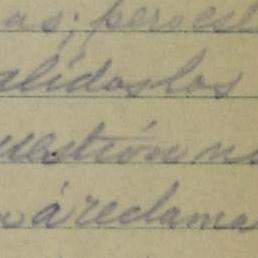 as; pero es
alidos los
uestión n
á reclama